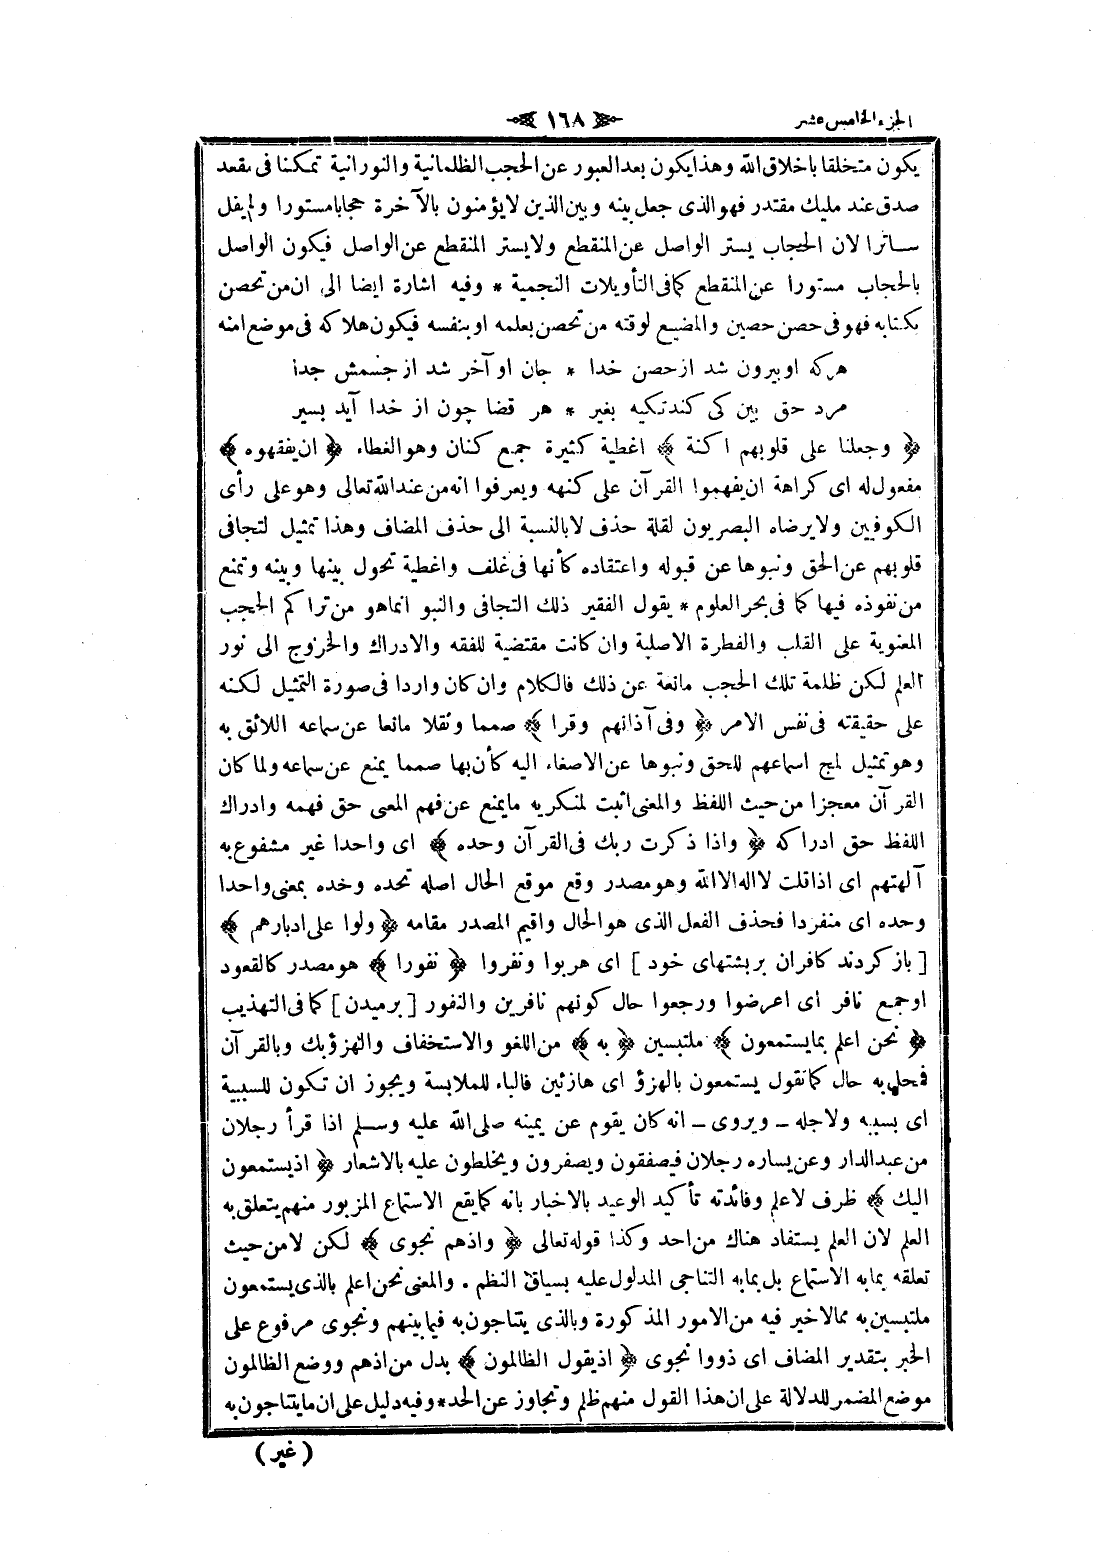 الجزء الخامس عشر
١٦٨
يكون متخلقا باخلاق الله وهذا يكون بعد العبور عن الحجب الظلمانية والنورانية تمكنا فى مقعد
صدق عند مليك مقتدر فهو الذى جعل بينه وبين الذين لايؤمنون بالآخرة حجابا مستورا ولم يقل
ساترا لان الحجاب يستر الواصل عن المنقطع ولايستر المنقطع عن الواصل فيكون الواصل
بالحجاب مستورا عن المنقطع كما فى التأويلات النجمية * وفيه اشارة ايضا الى ان من تحصن
بكتابه فهو فى حصن حصين والمضيع لوقته من تحصن بعلمه او بنفسه فيكون هلاكه فى موضع امنه
هركه او بيرون شد از حصن خدا * جان او آخر شد از جسمش جدا
مرد حق بين كى كند تكيه بغير * هر قضا چون از خدا آيد بسير
﴿ وجعلنا على قلوبهم اكنة ﴾ اغطية كثيرة جمع كنان وهو الغطاء ﴿ ان يفقهوه ﴾
مفعول له اى كراهة ان يفهموا القرآن على كنهه ويعرفوا انه من عند الله تعالى وهو على رأى
الكوفيين ولايرضاه البصريون لقلة حذف لا بالنسبة الى حذف المضاف وهذا تمثيل لتجافى
قلوبهم عن الحق ونبوها عن قبوله واعتقاده كأنها فى غلف واغطية تحول بينها وبينه وتمنع
من نفوذه فيها كما فى بحر العلوم * يقول الفقير ذلك التجافى والنبو انما هو من تراكم الحجب
المعنوية على القلب والفطرة الاصلية وان كانت مقتضية للفقه والادراك والخروج الى نور
العلم لكن ظلمة تلك الحجب مانعة عن ذلك فالكلام وان كان واردا فى صورة التمثيل لكنه
على حقيقته فى نفس الامر ﴿ وفى آذانهم وقرا ﴾ صمما وثقلا مانعا عن سماعه اللائق به
وهو تمثيل لمج اسماعهم للحق ونبوها عن الاصغاء اليه كأن بها صمما يمنع عن سماعه ولما كان
القرآن معجزا من حيث اللفظ والمعنى اثبت لمنكريه مايمنع عن فهم المعنى حق فهمه وادراك
اللفظ حق ادراكه ﴿ واذا ذكرت ربك فى القرآن وحده ﴾ اى واحدا غير مشفوع به
آلهتهم اى اذا قلت لااله الا الله وهو مصدر وقع موقع الحال اصله تحده وحده بمعنى واحدا
وحده اى منفردا فحذف الفعل الذى هو الحال واقيم المصدر مقامه ﴿ ولوا على ادبارهم ﴾
[ باز كردند كافران بر بشتهاى خود ] اى هربوا ونفروا ﴿ نفورا ﴾ هو مصدر كالقعود
او جمع نافر اى اعرضوا ورجعوا حال كونهم نافرين والنفور [ برميدن ] كما فى التهذيب
﴿ نحن اعلم بما يستمعون ﴾ ملتبسين ﴿ به ﴾ من اللغو والاستخفاف والهزؤ بك وبالقرآن
فمحل به حال كما تقول يستمعون بالهزؤ اى هازئين فالباء للملابسة ويجوز ان تكون للسببية
اى بسببه ولاجله ـ ويروى ـ انه كان يقوم عن يمينه صلى الله عليه وسلم اذا قرأ رجلان
من عبد الدار وعن يساره رجلان فيصفقون ويصفرون ويخلطون عليه بالاشعار ﴿ اذ يستمعون
اليك ﴾ ظرف لاعلم وفائدته تأكيد الوعيد بالاخبار بانه كما يقع الاستماع المزبور منهم يتعلق به
العلم لان العلم يستفاد هناك من احد وكذا قوله تعالى ﴿ واذ هم نجوى ﴾ لكن لا من حيث
تعلقه بما به الاستماع بل بما به التناجى المدلول عليه بسياق النظم . والمعنى نحن اعلم بالذى يستمعون
ملتبسين به مما لاخير فيه من الامور المذكورة وبالذى يتناجون به فيما بينهم ونجوى مرفوع على
الخبر بتقدير المضاف اى ذووا نجوى ﴿ اذ يقول الظالمون ﴾ بدل من اذهم ووضع الظالمون
موضع المضمر للدلالة على ان هذا القول منهم ظلم وتجاوز عن الحد * وفيه دليل على ان مايتناجون به
( غير )